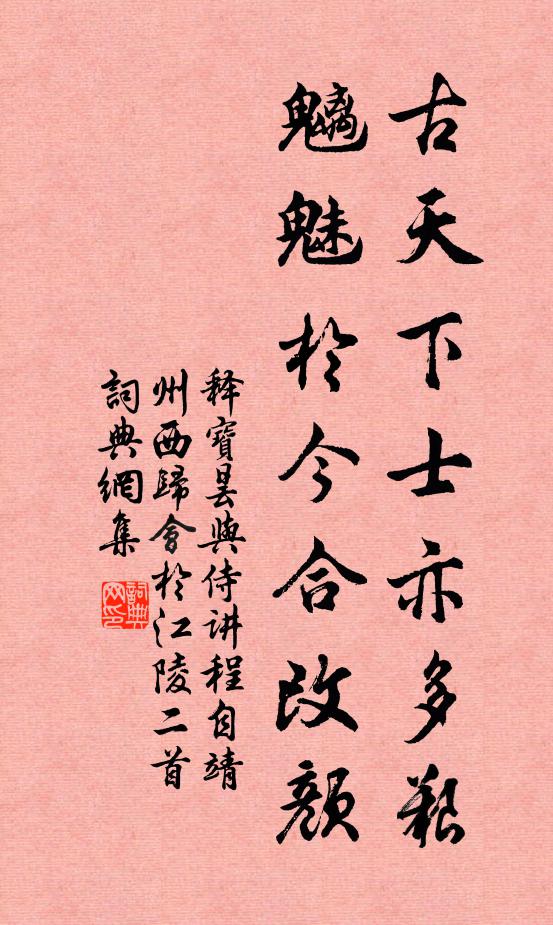 古天下士亦多艱
魑魅於今合改顏
释寶曇與侍讲程自靖
州西歸會於江陵二首
詞典網集
詞典
网印